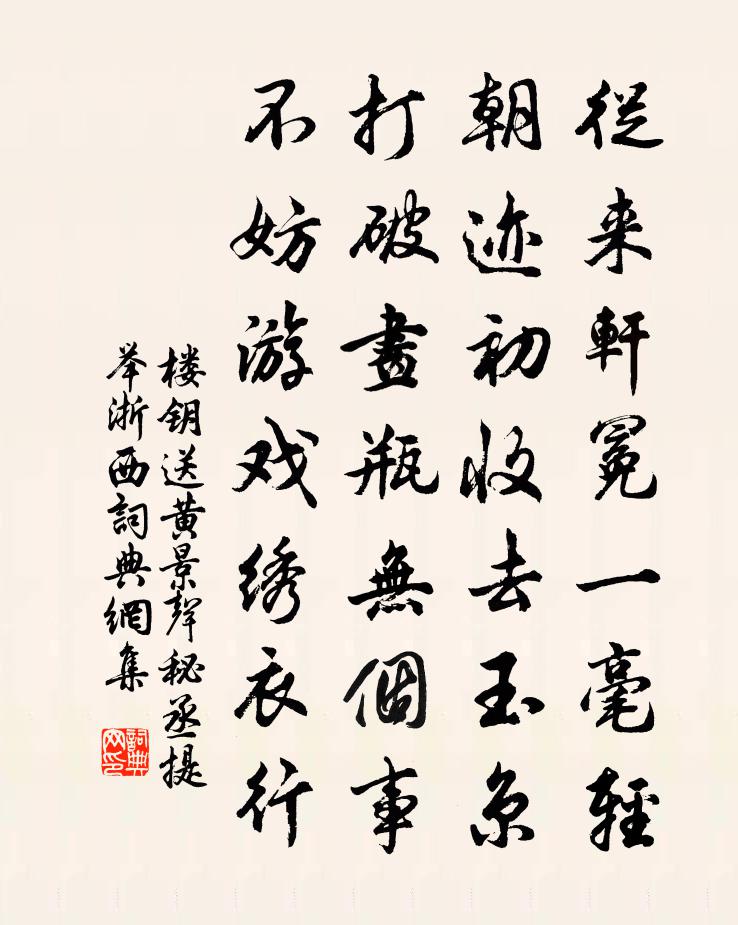 從来軒冕一毫輕
朝迹初收去玉京
打破畫瓶無個事
不妨游戏绣衣行
楼钥送黄景聲秘丞提
举浙西詞典網集
詞典
网印